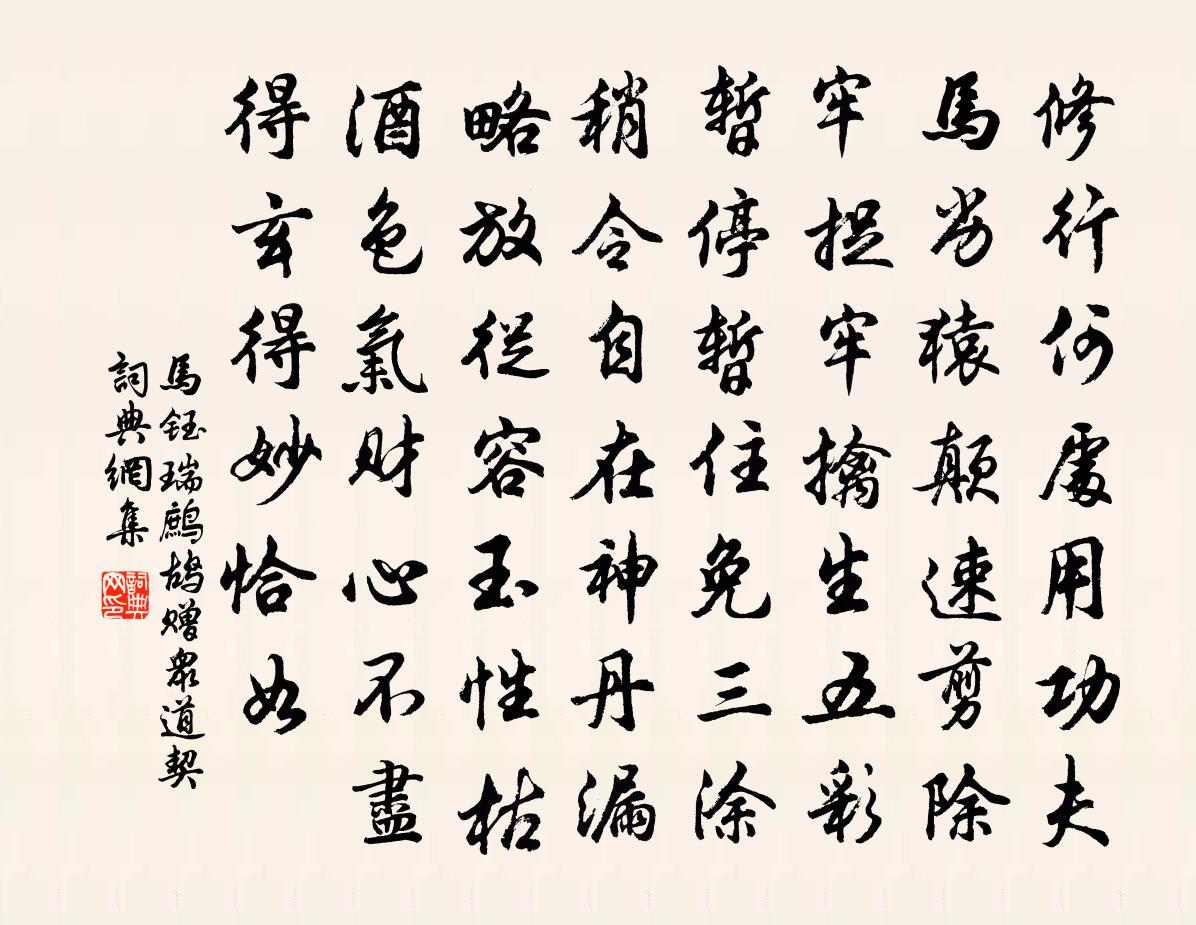 修行何處用功夫
馬劣猿顛速剪除
牢捉牢擒生五彩
暫停暫住免三涂
稍令自在神丹漏
略放從容玉性枯
酒色氣財心不盡
得玄得妙恰如
馬鈺瑞鷓鴣贈眾道契
詞典網集
詞典网印